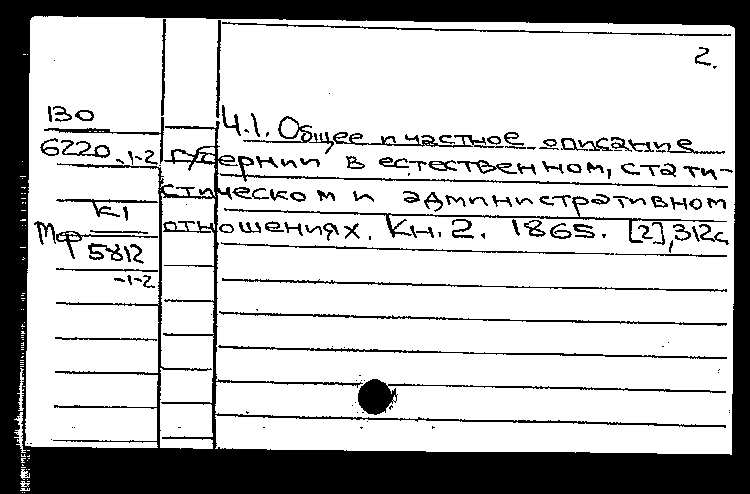 2.
130
6220-1-2
К1
Мф 5812
-1-2
Ч.1. Общее и частное описание
губернии в естественном, стати-
стическом и административном
отношениях. Кн. 2. 1865. [2], 312с